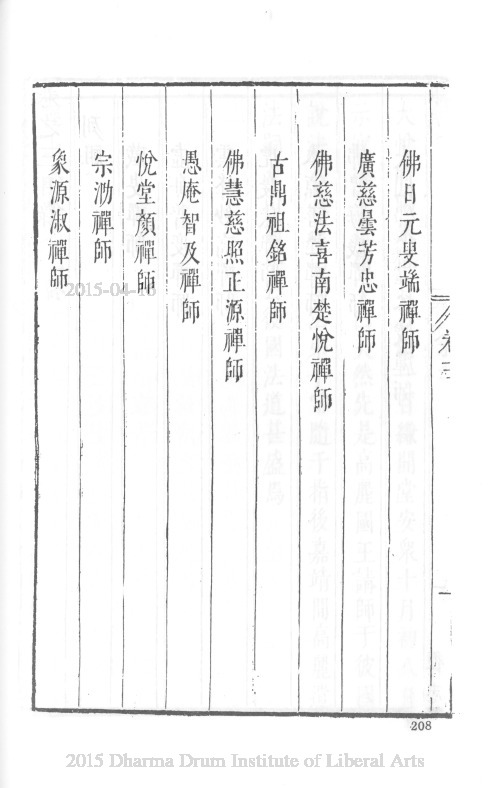 佛日元叟端禪師
廣慈曇芳忠禪師
佛慈法喜南楚悅禪師
古鼎祖銘禪師
佛慧慈照正源禪師
愚庵智及禪師
悅堂顏禪師
宗泐禪師
象源淑禪師
卷三
208
2015 Dharma Drum Institute of Liberal Arts